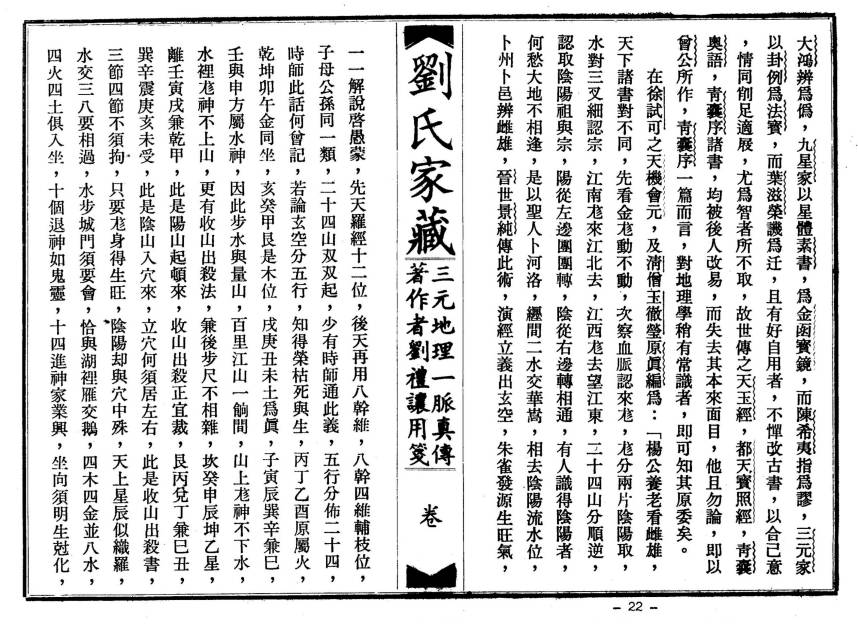 大鴻辨爲僞，九星家以星體素書，爲金函寶鏡，而陳希夷指爲謬，三元家
以卦例爲法寶，而葉滋榮譏爲迂，且有好自用者，不憚改古書，以合己意
，情同削足適屐，尤爲智者所不取，故世傳之天玉經，都天寶照經，青囊
奧語，青囊序諸書，均被後人改易，而失去其本來面目，他且勿論，即以
曾公所作，青囊序一篇而言，對地理學稍有常識者，即可知其原委矣。
在徐試可之天機會元，及清僧玉徹瑩原眞編爲：「楊公養老看雌雄，
天下諸書對不同，先看金尨動不動，次察血脈認來尨，尨分兩片陰陽取，
水對三叉細認宗，江南尨來江北去，江西尨去望江東，二十四山分順逆，
認取陰陽祖與宗，陽從左邊團團轉，陰從右邊轉相通，有人識得陰陽者，
何愁大地不相逢，是以聖人卜河洛，瀍間二水交華嵩，相去陰陽流水位，
卜州卜邑辨雌雄，晉世景純傳此術，演經立義出玄空，朱雀發源生旺氣，
劉氏家藏
三元地理一脈真傳
著作者劉禮讓用箋
卷
一一解說啓愚蒙，先天羅經十二位，後天再用八幹維，八幹四維輔枝位，
子母公孫同一類，二十四山双双起，少有時師通此義，五行分佈二十四，
時師此話何曾記，若論玄空分五行，知得榮枯死與生，丙丁乙酉原屬火，
乾坤卯午金同坐，亥癸甲艮是木位，戌庚丑未土爲眞，子寅辰巽辛兼巳，
壬與申方屬水神，因此步水與量山，百里江山一餉間，山上尨神不下水，
水裡尨神不上山，更有收山出殺法，兼後步尺不相雜，坎癸申辰坤乙星，
離壬寅戌兼乾甲，此是陽山起頓來，收山出殺正宜裁，艮丙兌丁兼巳丑，
巽辛震庚亥未受，此是陰山入穴來，立穴何須居左右，此是收山出殺書，
三節四節不須拘，只要尨身得生旺，陰陽却與穴中殊，天上星辰似織羅，
水交三八要相過，水步城門須要會，恰與湖裡雁交鵝，四木四金並八水，
四火四土俱入坐，十個退神如鬼靈，十四進神家業興，坐向須明生尅化，
- 22 -